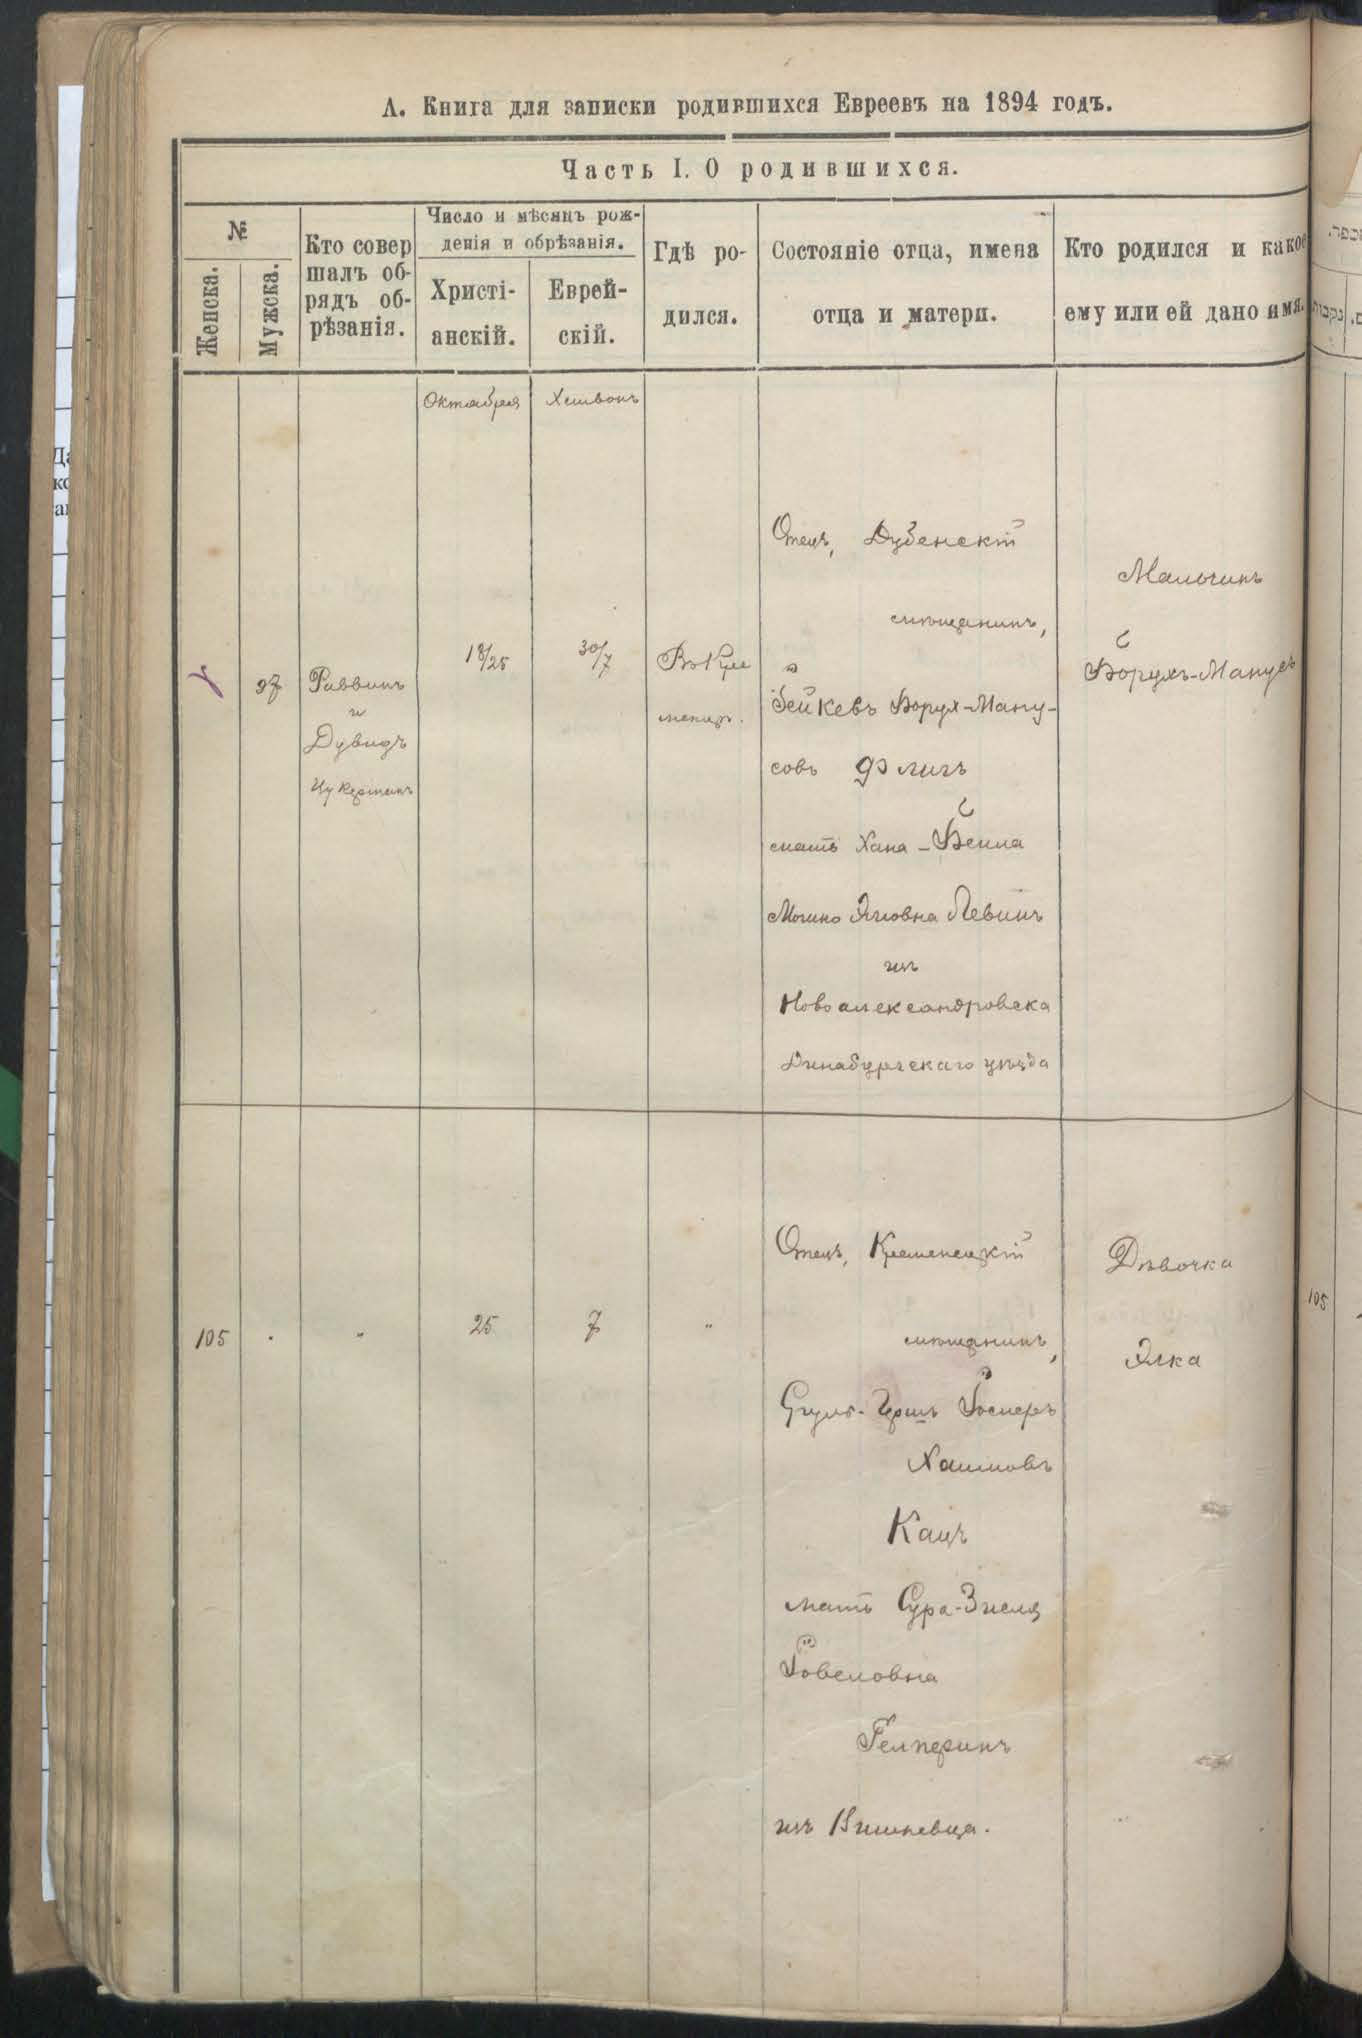 А. Книга для записки родившихся Евреевъ на 1894 годъ.
Часть I. О родившихся.
№
Женска.
Мужска.
Кто совер
шалъ об-
рядъ об-
рѣзанія.
Число и мѣсяцъ рож-
денія и обрѣзанія.
Христі-
анскій.
Еврей-
скій.
Гдѣ ро-
дился.
Состояніе отца, имена
отца и матери.
Кто родился и какое
ему или ей дано имя.
Октября
Хешвонъ
97
Раввинъ
и
Дувидъ
Цукерманъ
18/25
30/7
Въ Кре
менцѣ.
Отецъ, Дубенскій
мѣщанинъ,
Борух-Ману-
совъ Флигъ
мать Хана-Бейла
Левинъ
изъ
Новоалександровска
Динабургскаго уѣзда
Мальчикъ
Борухъ-Манусъ
105
"
"
25
7
"
Отецъ, Кременецкій
мѣщанинъ,
Гершъ
Хаимовъ
Кацъ
мать Сура-Зисля
Іовеловна
Гелперинъ
изъ Вишневца.
Дѣвочка
Элка
105